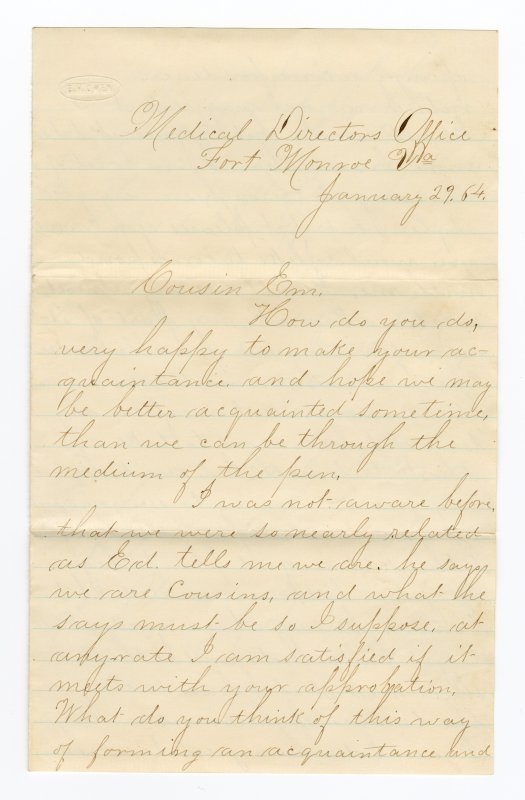 Medical Directors Office
Fort Monroe Va
January 29. 64.
Cousin Em.
How do you do,
very happy to make your ac-
quaintance. and hope we may
be better acquainted sometime,
than we can be through the
medium of the pen.
I was not aware before,
that we were so nearly related
as Ed. tells me we are. he says
we are Cousins, and what he
says must be so I suppose. at
any rate I am satisfied if it
meets with your approbation.
What do you think of this way
of forming an acquaintance and